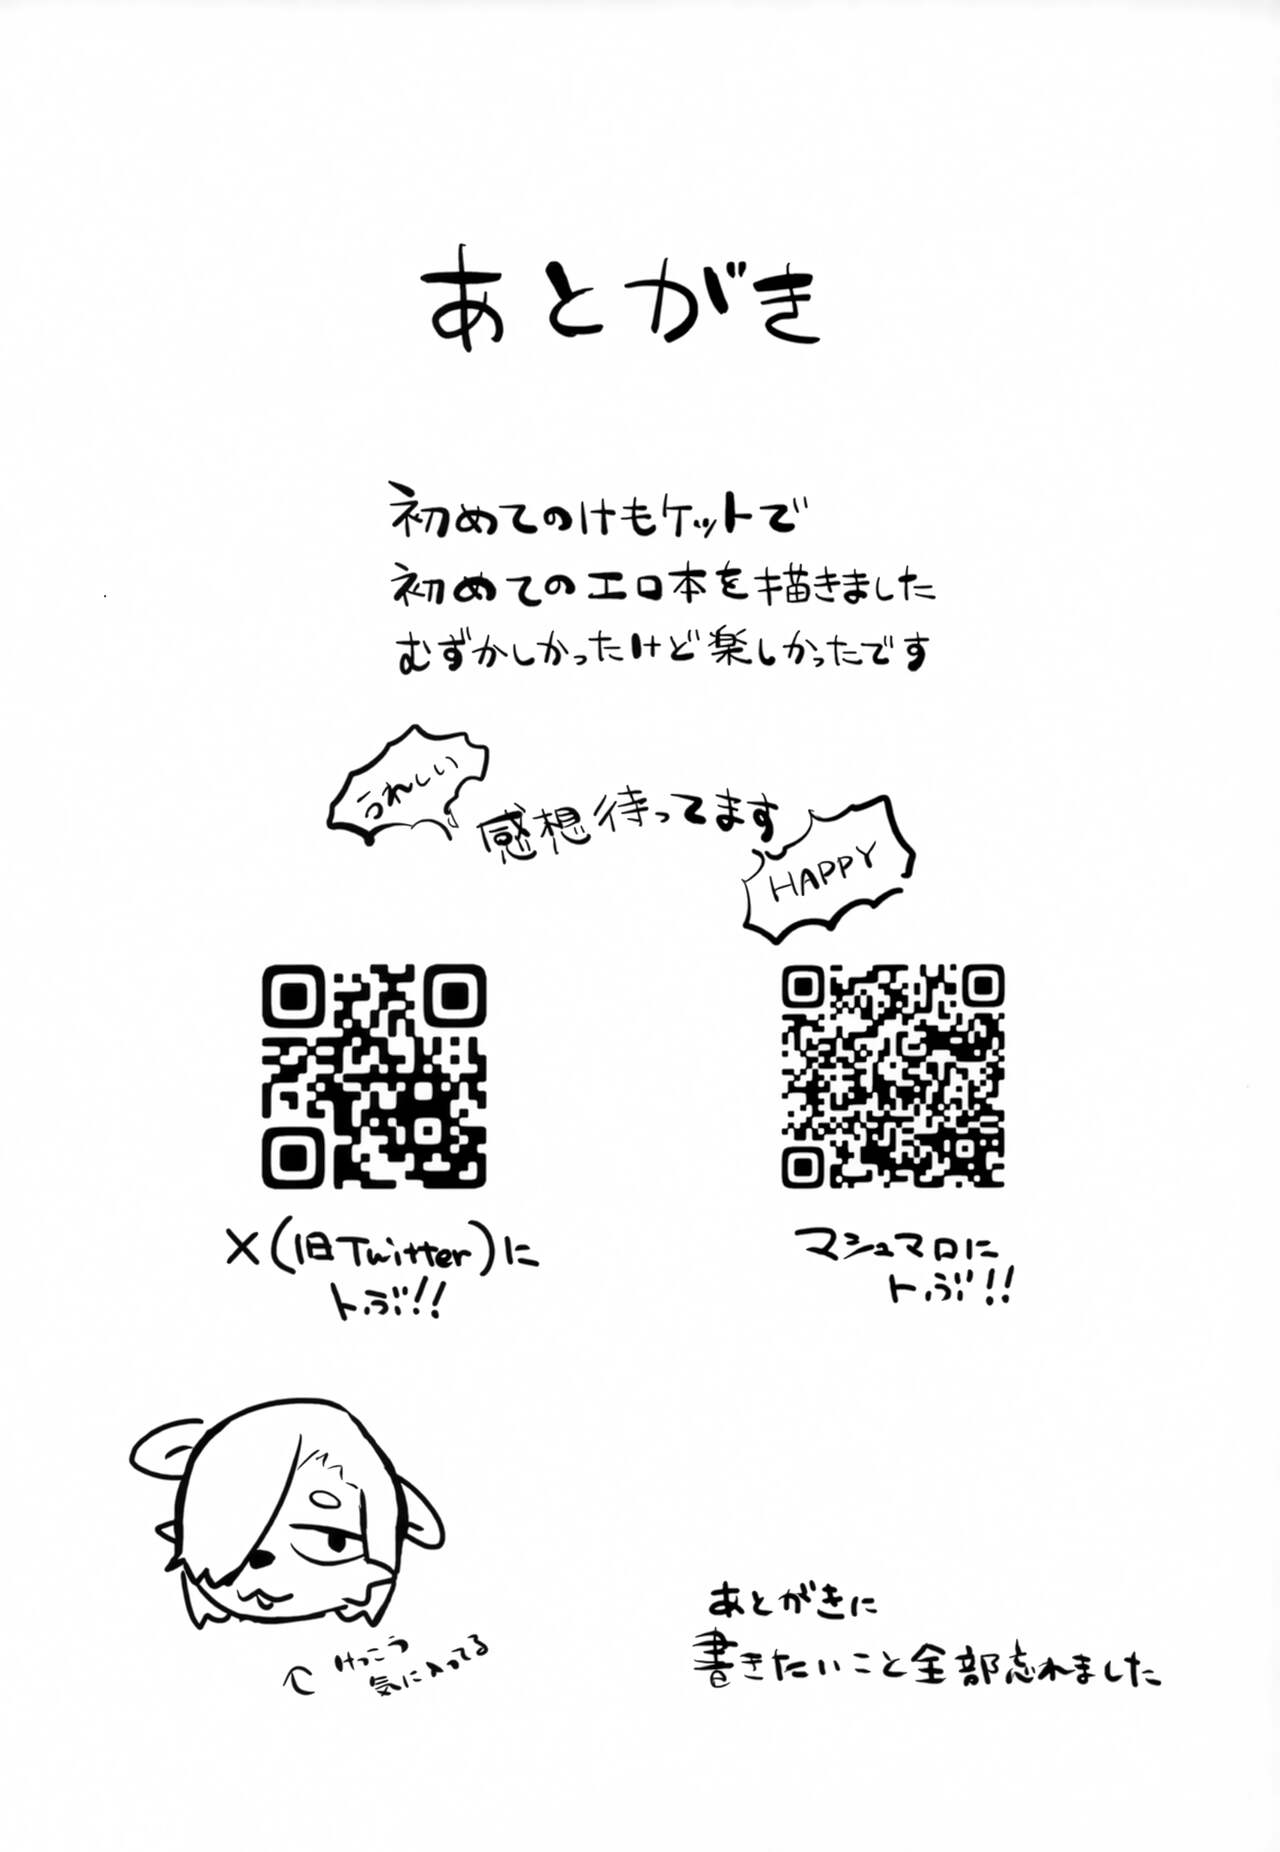 あとがき
初めてのけもケットで
初めてのエロ本を描きました
むずかしかったけど楽しかったです
うれしい
感想待ってます
HAPPY
X(旧Twitter)に
トぶ!!
マシュマロに
トぶ!!
けっこう
気に入ってる
あとがきに
書きたいこと全部忘れました